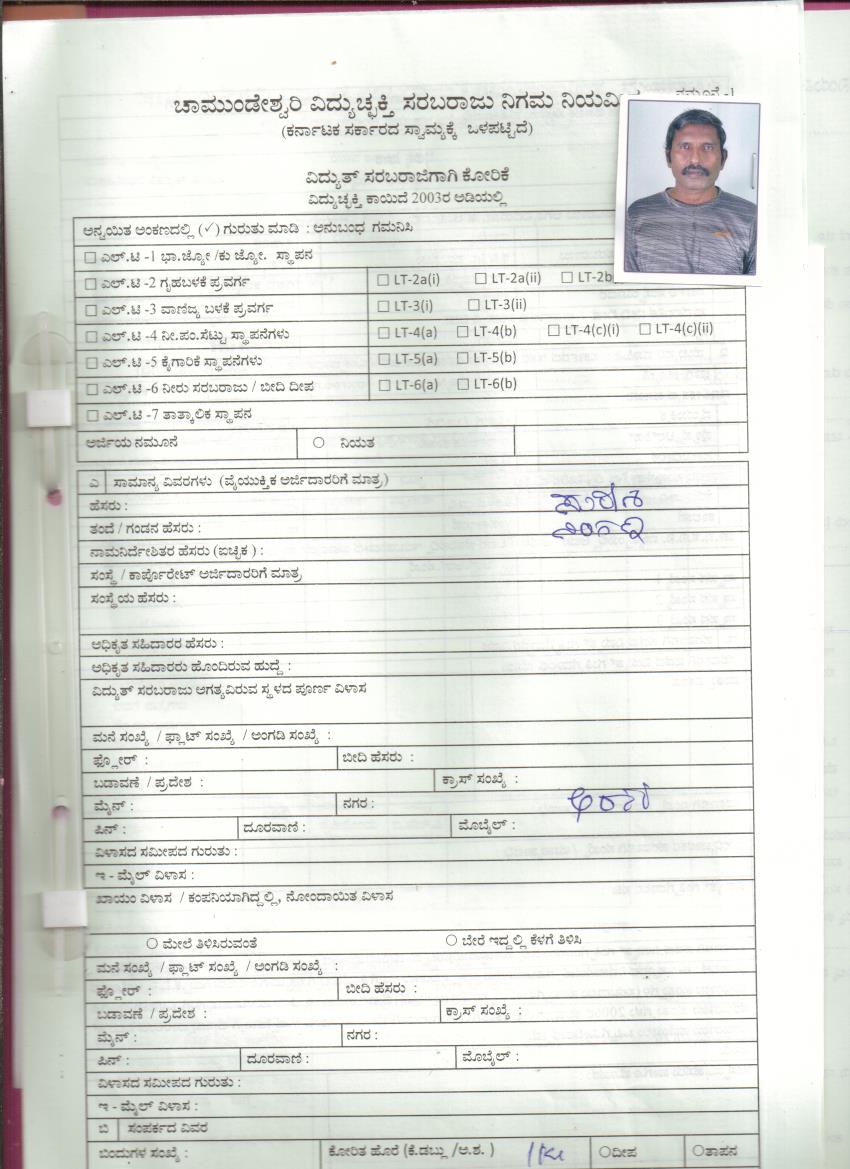 ನಮೂನೆ -1
ಚಾಮುಂಡೇಶ್ವರಿ ವಿದ್ಯುಚ್ಛಕ್ತಿ ಸರಬರಾಜು ನಿಗಮ
(ಕರ್ನಾಟಕ ಸರ್ಕಾರದ ಸ್ವಾಮ್ಯಕ್ಕೆ ಒಳಪಟ್ಟಿದೆ)
ವಿದ್ಯುತ್ ಸರಬರಾಜಿಗಾಗಿ ಕೋರಿಕೆ
ವಿದ್ಯುಚ್ಛಕ್ತಿ ಕಾಯಿದೆ 2003ರ ಅಡಿಯಲ್ಲಿ
ಅನ್ವಯಿತ ಅಂಕಣದಲ್ಲಿ (✓) ಗುರುತು ಮಾಡಿ : ಅನುಬಂಧ ಗಮನಿಸಿ
☐ ಎಲ್.ಟಿ -1 ಭಾ.ಜ್ಯೋ /ಕು ಜ್ಯೋ. ಸ್ಥಾಪನ
☐ ಎಲ್.ಟಿ -2 ಗೃಹಬಳಕೆ ಪ್ರವರ್ಗ ☐ LT-2a(i) ☐ LT-2a(ii) ☐ LT-2b
☐ ಎಲ್.ಟಿ -3 ವಾಣಿಜ್ಯ ಬಳಕೆ ಪ್ರವರ್ಗ ☐ LT-3(i) ☐ LT-3(ii)
☐ ಎಲ್.ಟಿ -4 ನೀ.ಪಂ.ಸೆಟ್ಟು ಸ್ಥಾಪನೆಗಳು ☐ LT-4(a) ☐ LT-4(b) ☐ LT-4(c)(i) ☐ LT-4(c)(ii)
☐ ಎಲ್.ಟಿ -5 ಕೈಗಾರಿಕೆ ಸ್ಥಾಪನೆಗಳು ☐ LT-5(a) ☐ LT-5(b)
☐ ಎಲ್.ಟಿ -6 ನೀರು ಸರಬರಾಜು / ಬೀದಿ ದೀಪ ☐ LT-6(a) ☐ LT-6(b)
☐ ಎಲ್.ಟಿ -7 ತಾತ್ಕಾಲಿಕ ಸ್ಥಾಪನ
ಅರ್ಜಿಯ ನಮೂನೆ ○ ನಿಯತ
ಎ ಸಾಮಾನ್ಯ ವಿವರಗಳು (ವೈಯುಕ್ತಿಕ ಅರ್ಜಿದಾರರಿಗೆ ಮಾತ್ರ)
ಹೆಸರು :
ತಂದೆ / ಗಂಡನ ಹೆಸರು :
ನಾಮನಿರ್ದೇಶಿತರ ಹೆಸರು (ಐಚ್ಛಿಕ ) :
ಸಂಸ್ಥೆ / ಕಾರ್ಪೊರೇಟ್ ಅರ್ಜಿದಾರರಿಗೆ ಮಾತ್ರ
ಸಂಸ್ಥೆಯ ಹೆಸರು :
ಅಧಿಕೃತ ಸಹಿದಾರರ ಹೆಸರು :
ಅಧಿಕೃತ ಸಹಿದಾರರು ಹೊಂದಿರುವ ಹುದ್ದೆ :
ವಿದ್ಯುತ್ ಸರಬರಾಜು ಅಗತ್ಯವಿರುವ ಸ್ಥಳದ ಪೂರ್ಣ ವಿಳಾಸ
ಮನೆ ಸಂಖ್ಯೆ / ಫ್ಲಾಟ್ ಸಂಖ್ಯೆ / ಅಂಗಡಿ ಸಂಖ್ಯೆ :
ಫ್ಲೋರ್ : ಬೀದಿ ಹೆಸರು :
ಬಡಾವಣೆ / ಪ್ರದೇಶ : ಕ್ರಾಸ್ ಸಂಖ್ಯೆ :
ಮೈನ್ : ನಗರ :
ಪಿನ್ : ದೂರವಾಣಿ : ಮೊಬೈಲ್ :
ವಿಳಾಸದ ಸಮೀಪದ ಗುರುತು :
ಇ - ಮೈಲ್ ವಿಳಾಸ :
ಖಾಯಂ ವಿಳಾಸ / ಕಂಪನಿಯಾಗಿದ್ದಲ್ಲಿ, ನೋಂದಾಯಿತ ವಿಳಾಸ
○ ಮೇಲೆ ತಿಳಿಸಿರುವಂತೆ ○ ಬೇರೆ ಇದ್ದಲ್ಲಿ ಕೆಳಗೆ ತಿಳಿಸಿ
ಮನೆ ಸಂಖ್ಯೆ / ಫ್ಲಾಟ್ ಸಂಖ್ಯೆ / ಅಂಗಡಿ ಸಂಖ್ಯೆ :
ಫ್ಲೋರ್ : ಬೀದಿ ಹೆಸರು :
ಬಡಾವಣೆ / ಪ್ರದೇಶ : ಕ್ರಾಸ್ ಸಂಖ್ಯೆ :
ಮೈನ್ : ನಗರ :
ಪಿನ್ : ದೂರವಾಣಿ : ಮೊಬೈಲ್ :
ವಿಳಾಸದ ಸಮೀಪದ ಗುರುತು :
ಇ - ಮೈಲ್ ವಿಳಾಸ :
ಬಿ ಸಂಪರ್ಕದ ವಿವರ
ಬಿಂದುಗಳ ಸಂಖ್ಯೆ : ಕೋರಿತ ಹೊರೆ (ಕೆ.ಡಬ್ಲು /ಅ.ಶ. ) ○ದೀಪ ○ತಾಪನ